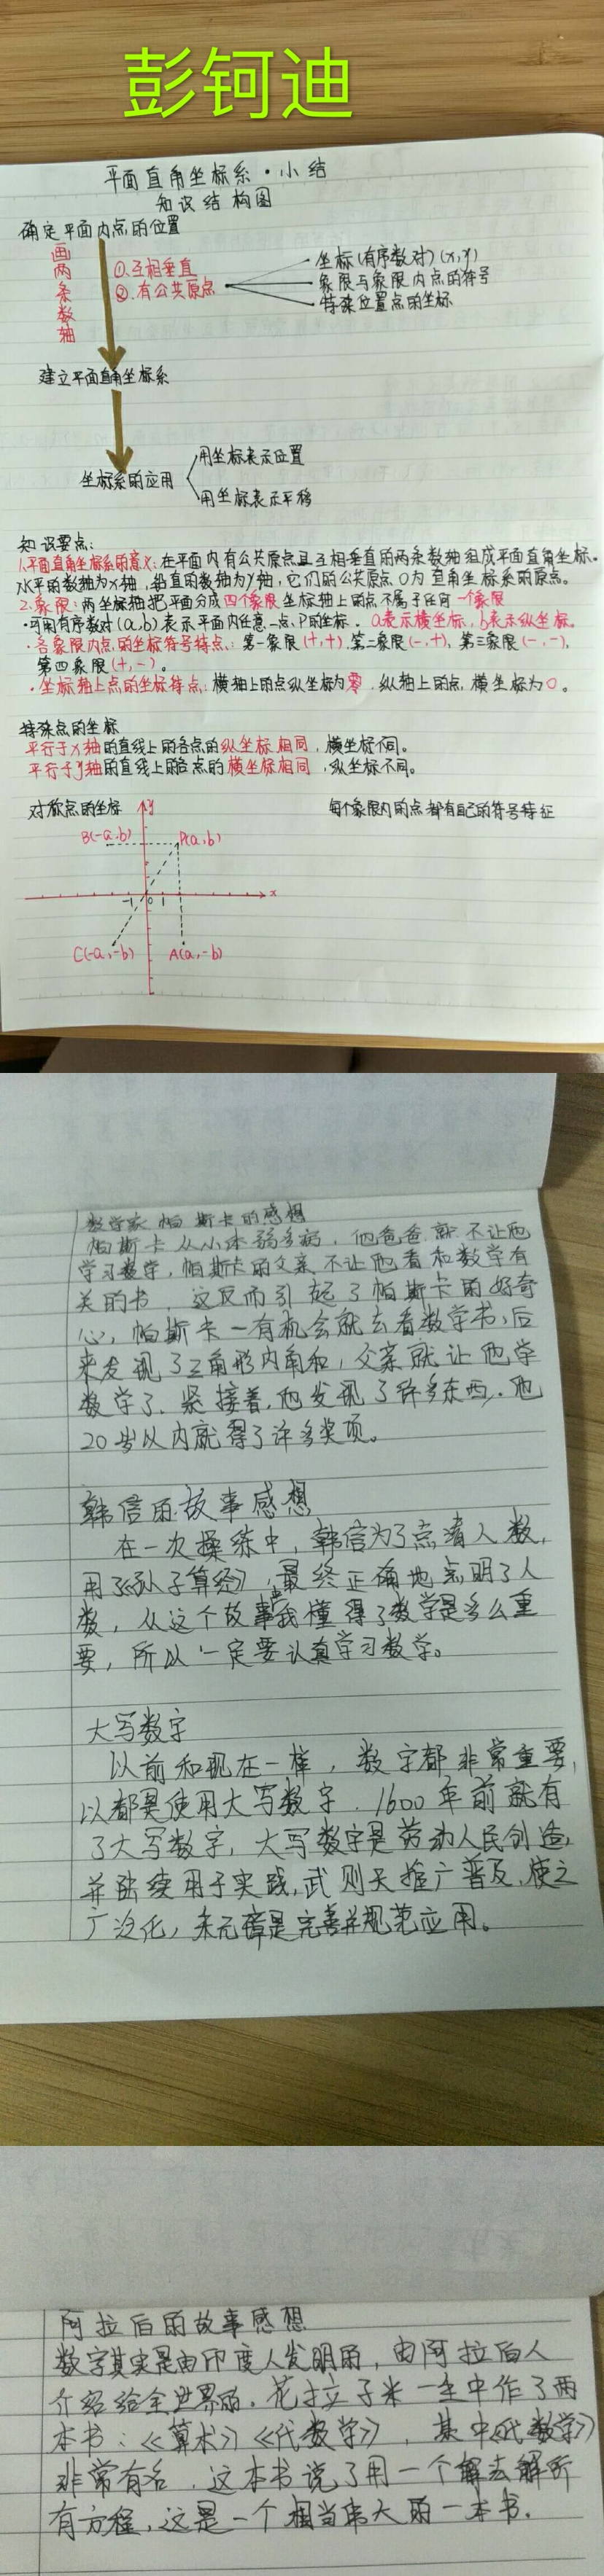 彭钶迪
平面直角坐标系·小结
知识结构图
确定平面内点的位置
画两条数轴
①互相垂直
②有公共原点
坐标(有序数对)(x,y)
象限与象限内点的符号
特殊位置点的坐标
建立平面直角坐标系
坐标系的应用
用坐标表示位置
用坐标表示平移
知识要点:
1.平面直角坐标系的意义:在平面内有公共原点且互相垂直的两条数轴组成平面直角坐标。
水平的数轴为x轴,铅直的数轴为y轴,它们的公共原点O为直角坐标系的原点。
2.象限:两坐标轴把平面分成四个象限坐标轴上的点不属于任何一个象限
·可用有序数对(a,b)表示平面内任意一点P的坐标。a表示横坐标,b表示纵坐标。
·各象限内点的坐标符号特点:第一象限(+,+),第二象限(-,+),第三象限(-,-),
第四象限(+,-)。
·坐标轴上点的坐标特点:横轴上的点纵坐标为零,纵轴上的点,横坐标为0。
特殊点的坐标
平行于x轴的直线上的各点的纵坐标相同,横坐标不同。
平行于y轴的直线上的各点的横坐标相同,纵坐标不同。
对称点的坐标
每个象限内的点都有自己的符号特征
y
B(-a,b)
P(a,b)
-1 0 1
x
C(-a,-b)
A(a,-b)
数学家帕斯卡的感想
帕斯卡从小体弱多病,他爸爸就不让他
学习数学,帕斯卡的父亲不让他看和数学有
关的书,这反而引起了帕斯卡的好奇
心,帕斯卡一有机会就去看数学书,后
来发现了三角形内角和,父亲就让他学
数学了,紧接着,他发现了许多东西,他
20岁以内就得了许多奖项。
韩信的故事感想
在一次操练中,韩信为了点清人数,
用了《孙子算经》,最终正确地点明了人
数,从这个故事我懂得了数学是多么重
要,所以一定要认真学习数学。
大写数字
以前和现在一样,数字都非常重要,
以都是使用大写数字.1600年前就有
了大写数字,大写数字是劳动人民创造,
并陆续用于实践,武则天推广普及,使之
广泛化,朱元璋是完善并规范应用。
阿拉伯的故事感想
数字其实是由印度人发明的,由阿拉伯人
介绍给全世界的.花拉子米一生中作了两
本书:《算术》《代数学》,其中《代数学》
非常有名,这本书说了用一个解去解所
有方程,这是一个相当伟大的一本书.